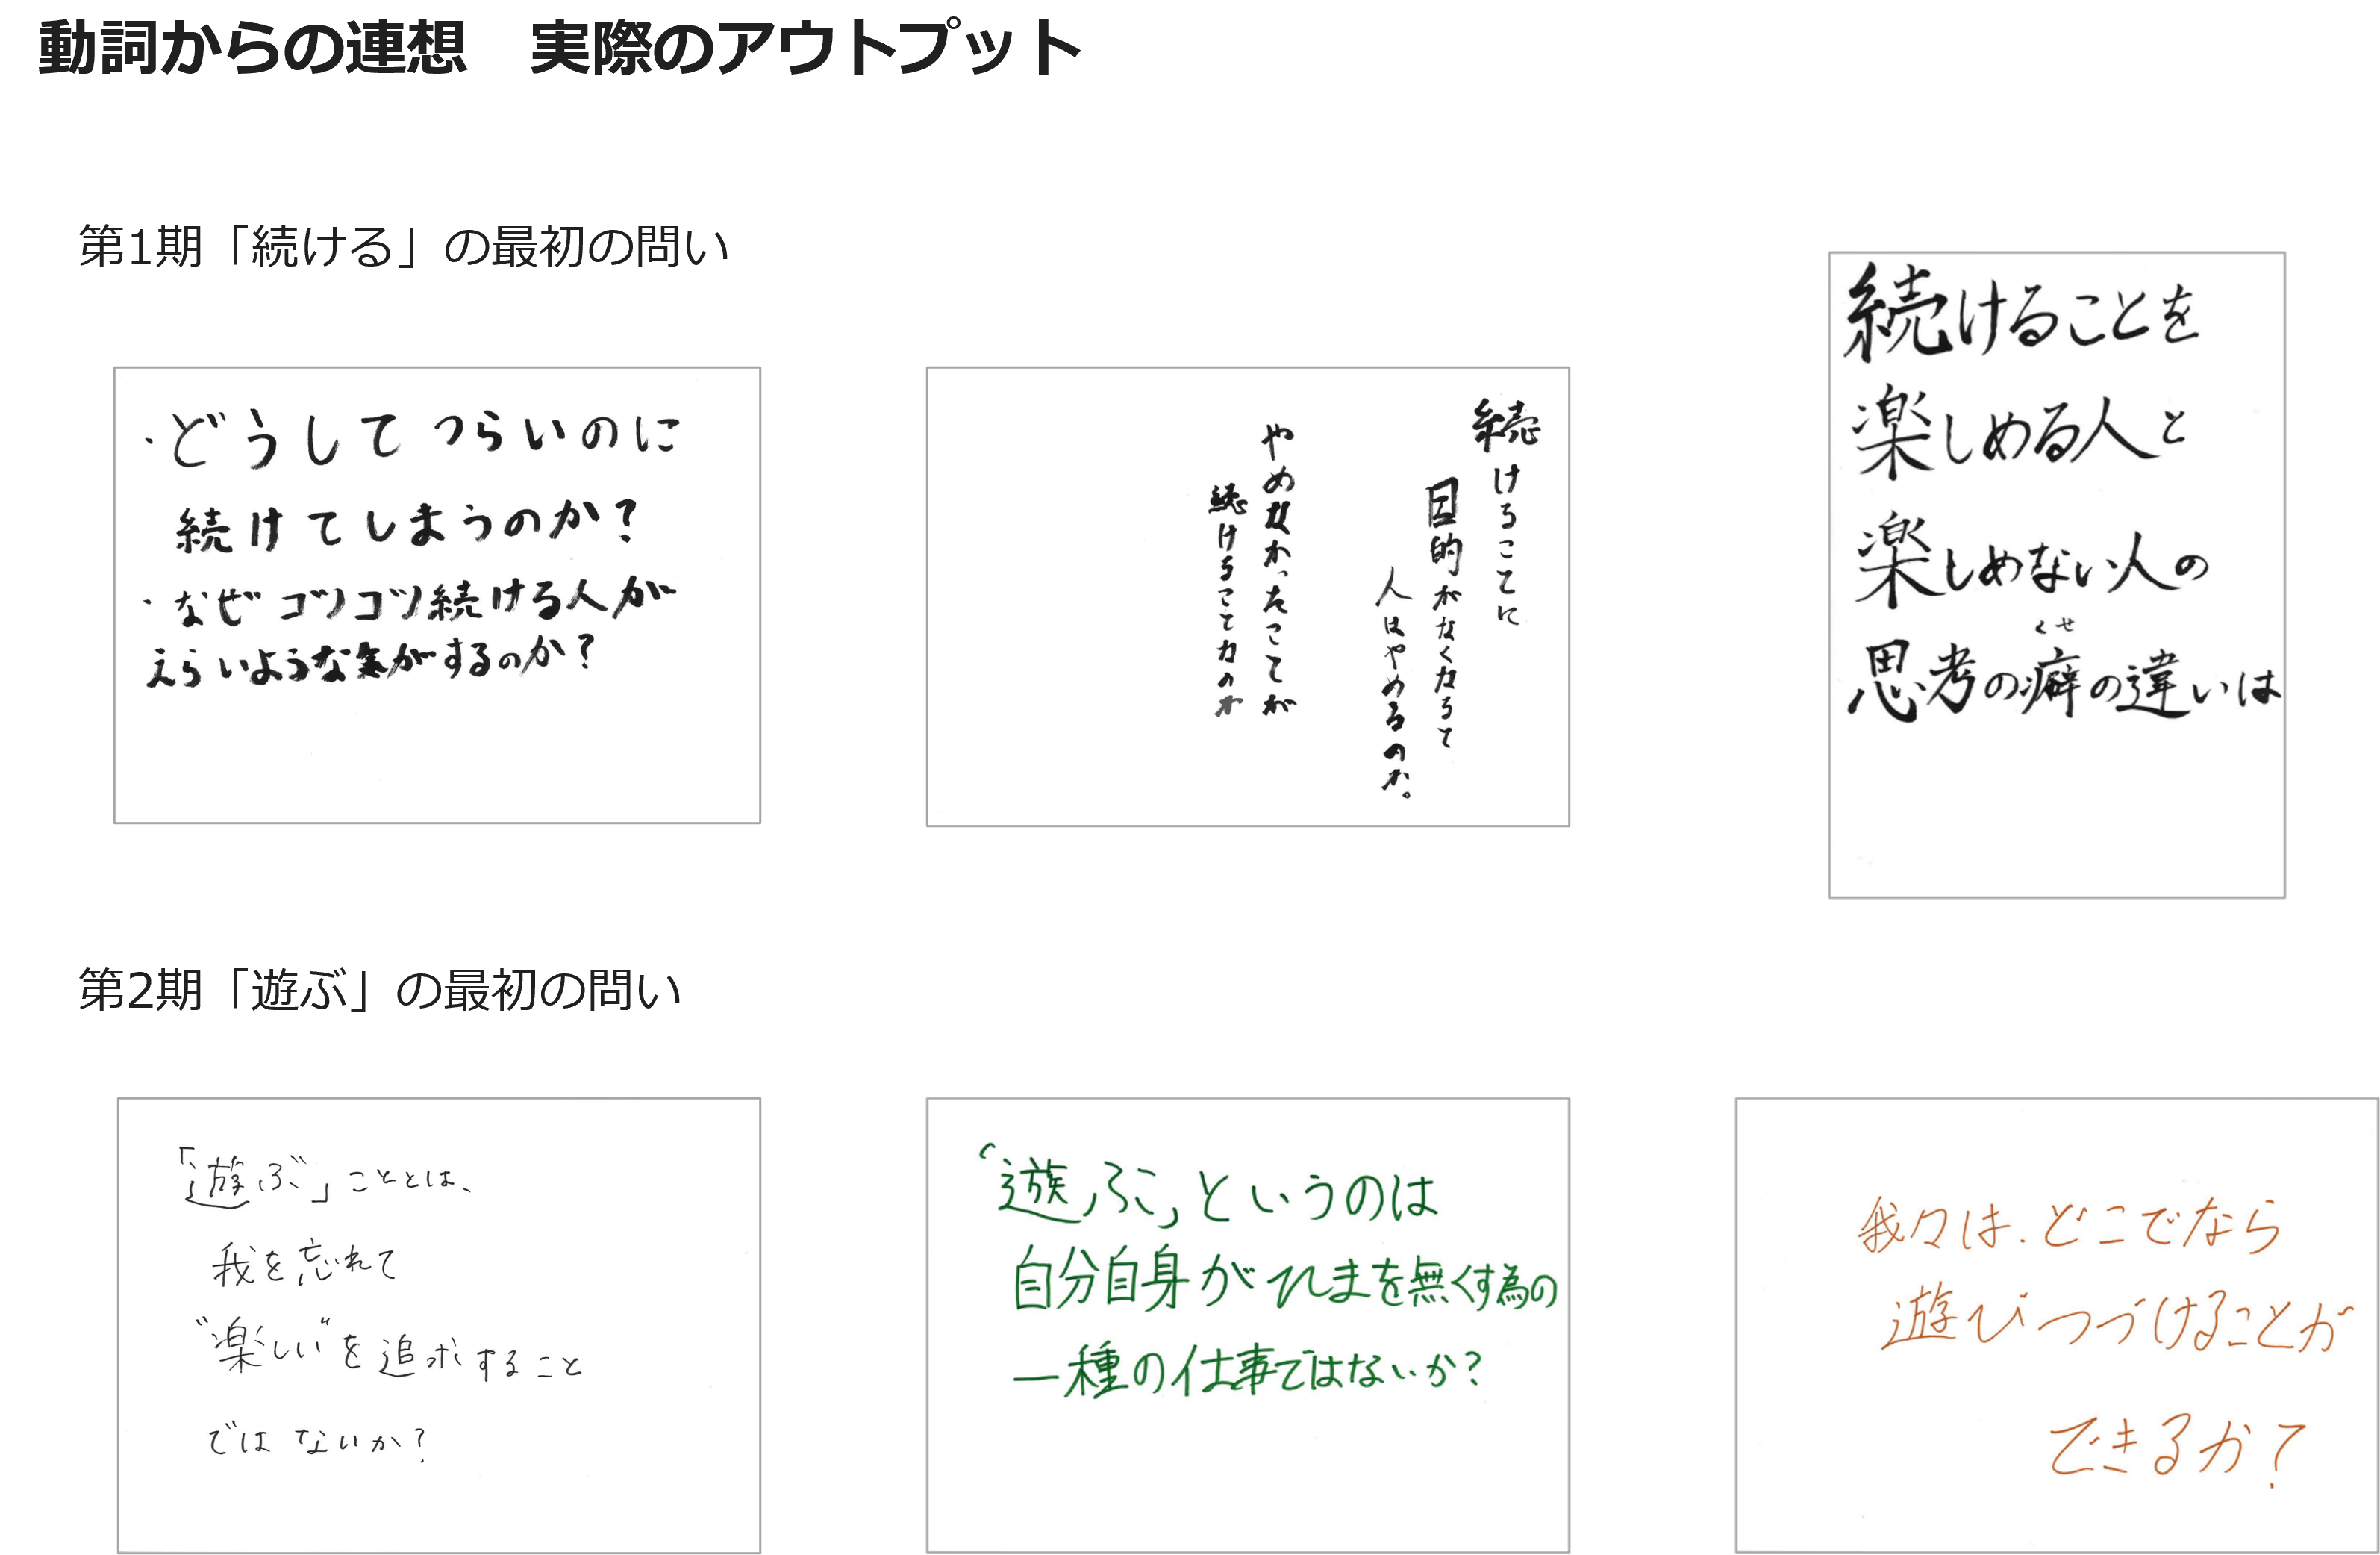 動詞からの連想　実際のアウトプット
第1期「続ける」の最初の問い
・どうしてつらいのに
続けてしまうのか？
・なぜコツコツ続ける人が
えらいような気がするのか？
続けることに
目的がなくなると
人はやめるのか。
やめなかったことが
続けることなのか
続けることを
楽しめる人と
楽しめない人の
思考の癖の違いは
くせ
第2期「遊ぶ」の最初の問い
「遊ぶ」こととは、
我を忘れて
"楽しい"を追求すること
ではないか？
「遊ぶ」というのは
自分自身がひまを無くす為の
一種の仕事ではないか？
我々は、どこでなら
遊びつづけることが
できるか？